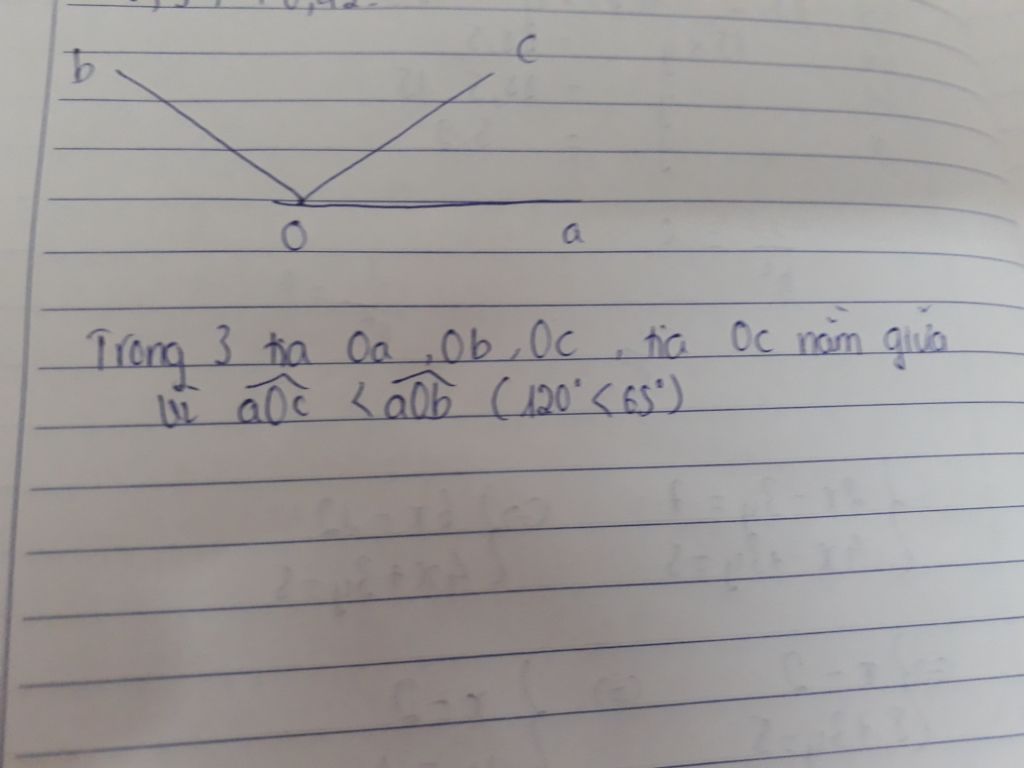 b
c
O
a
Trong 3 tia Oa, Ob, Oc, tia Oc nằm giữa
Vì aOc < aOb (120° < 65°)